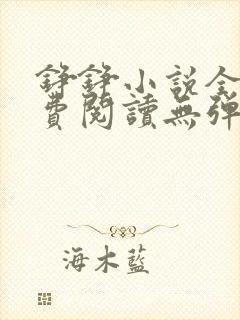 錚錚小說全
費閱讀無彈
海木藍